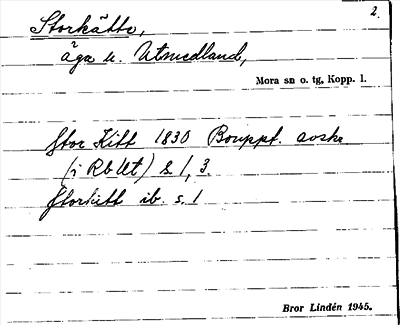 2.
Storkätte,
äga u. Utmedland,
Mora sn o. tg, Kopp. l.
Stor Kitt 1830 Bouppt. avskr
(i RbUt) s. 1, 3.
Storkitt ib. s. 1
Bror Lindén 1945.